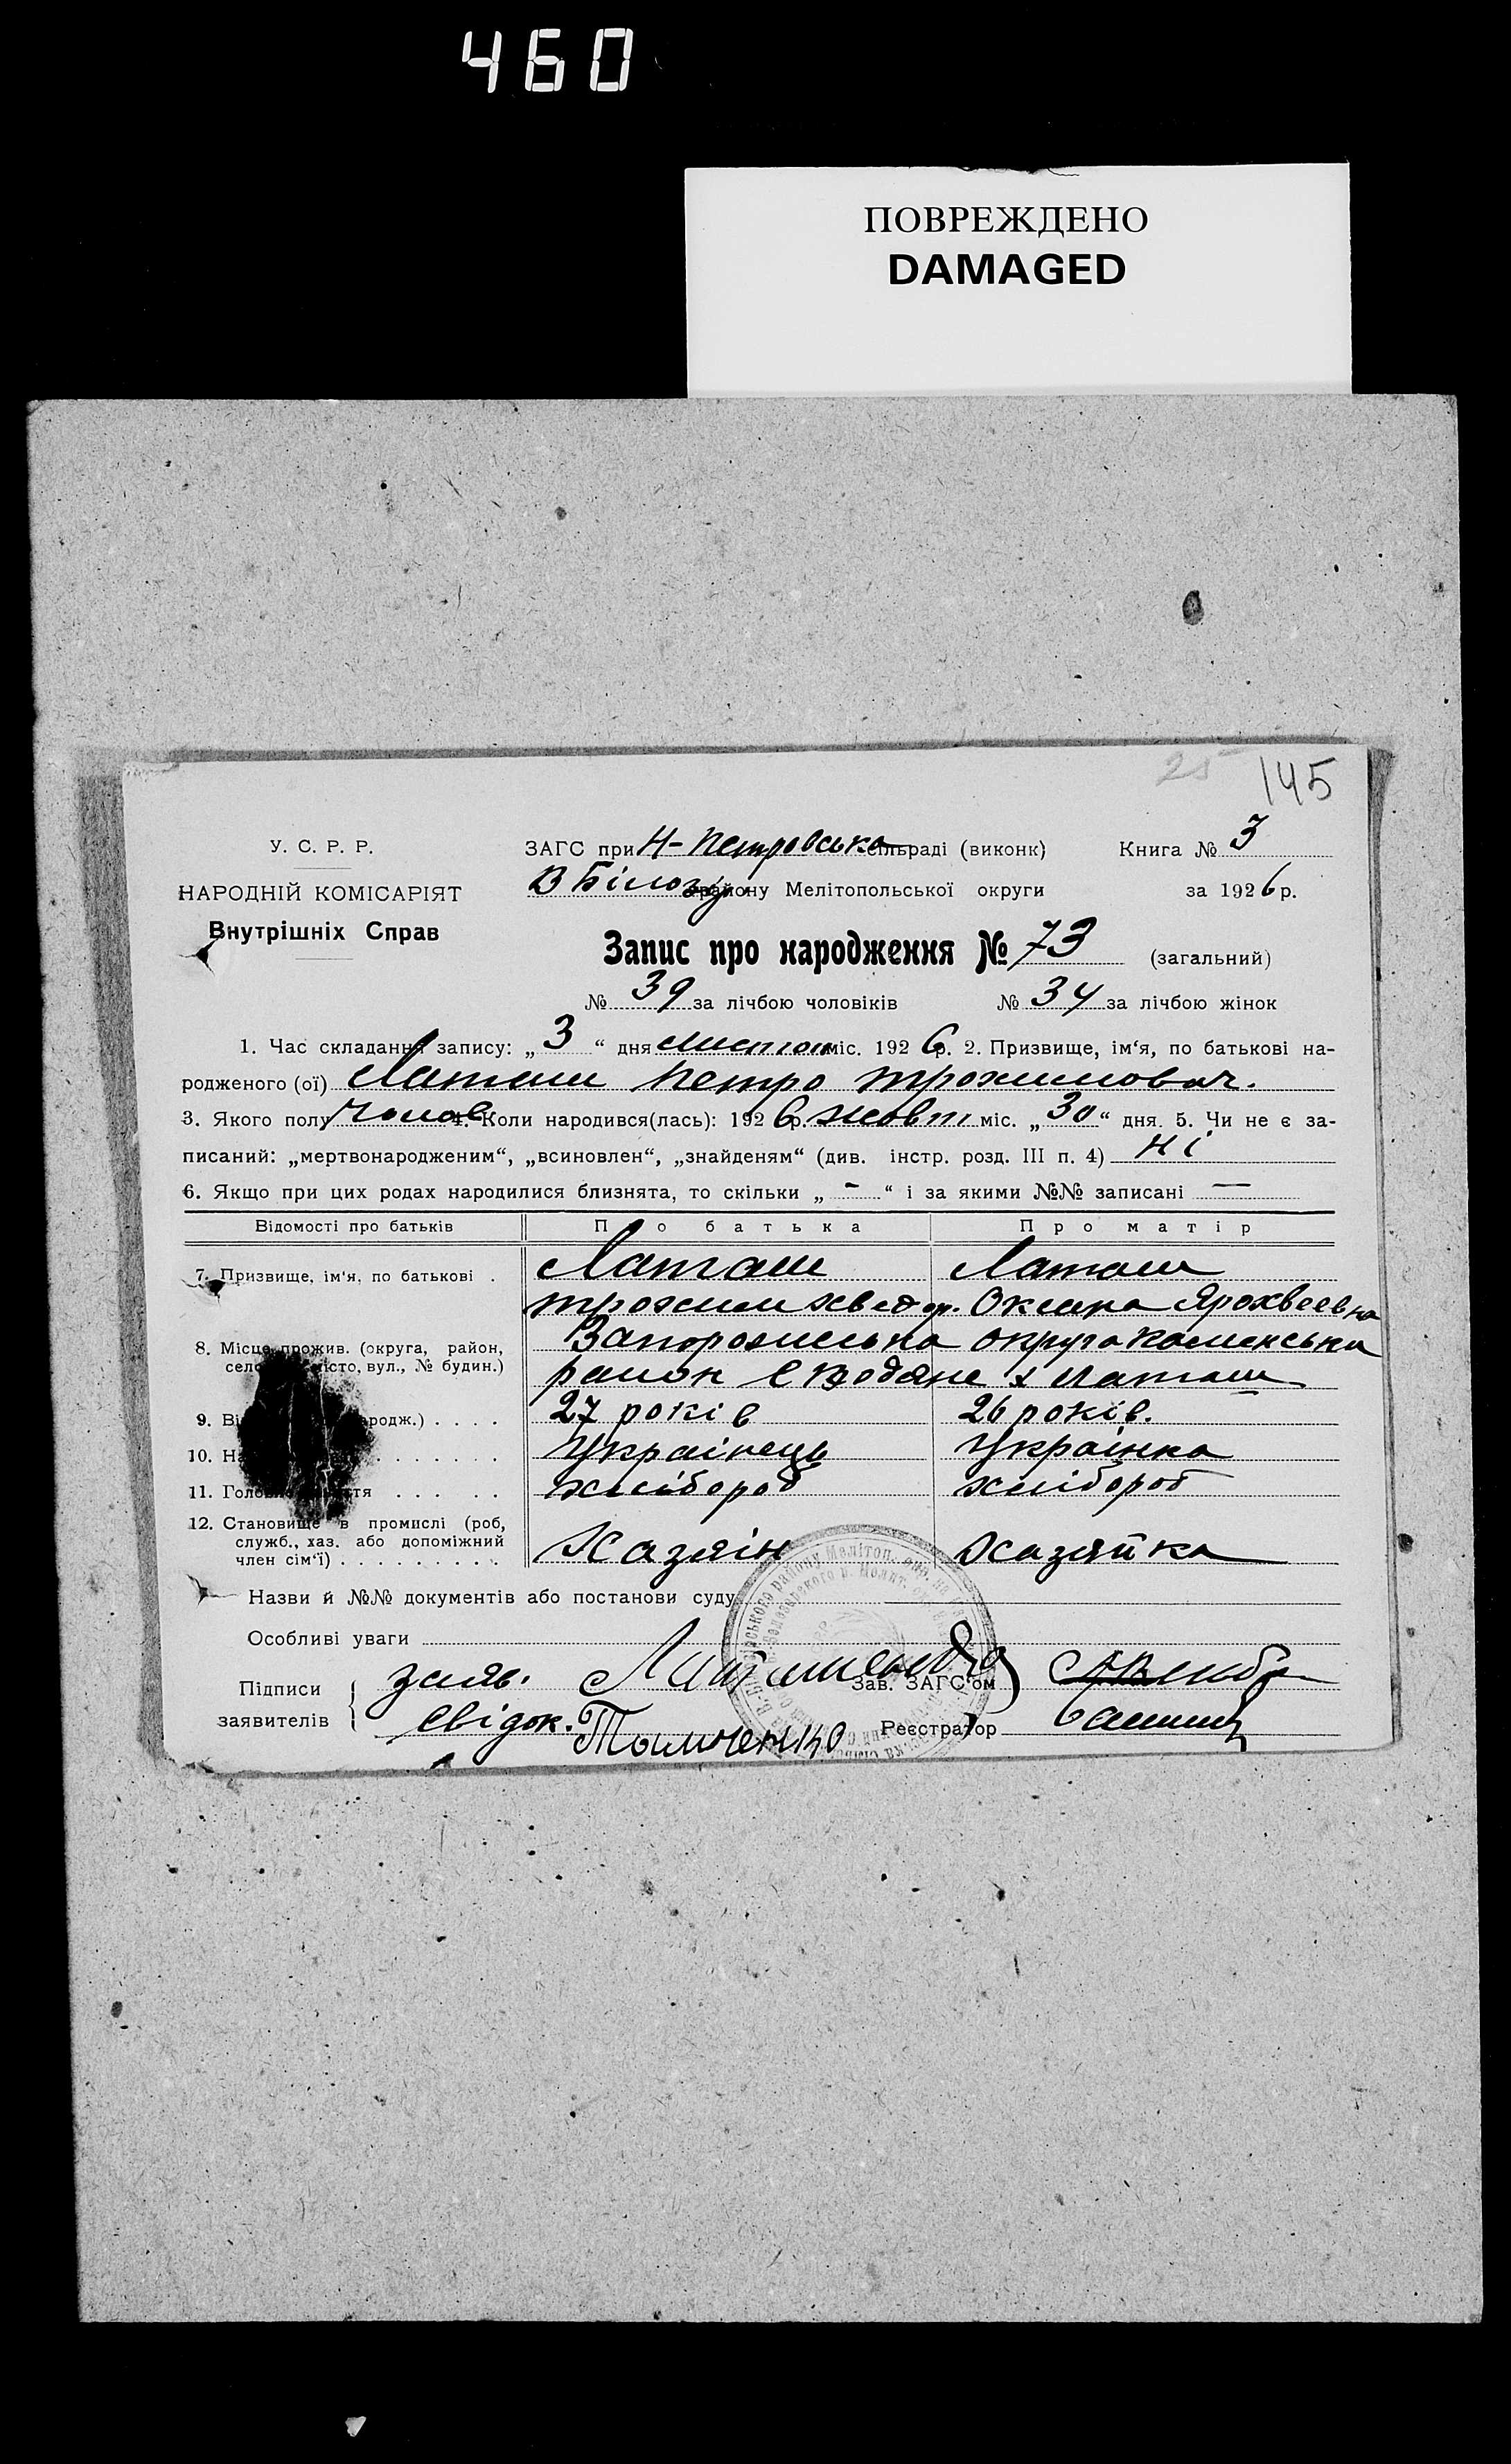 460
ПОВРЕЖДЕНО
DAMAGED
25 145
У. С. Р. Р.
НАРОДНІЙ КОМІСАРІЯТ
Внутрішніх Справ
ЗАГС при Н-Петровська сільраді (виконк) Книга № 3
В Білозір. району Мелітопольської округи за 1926 р.
Запис про народження № 73 (загальний)
№ 39 за лічбою чоловіків № 34 за лічбою жінок
1. Час складання запису: „3“ дня листоп міс. 1926 р. 2. Призвище, ім‘я, по батькові на-
родженого (ої) Латаш Петро Трохимович.
3. Якого полу чолов 4. Коли народився(лась): 1926 р. жовт міс. „30“ дня. 5. Чи не є за-
писаний: „мертвонародженим“, „всиновлен“, „знайденям“ (див. інстр. розд. III п. 4) Ні
6. Якщо при цих родах народилися близнята, то скільки „ - “ і за якими №№ записані —
Відомості про батьків Про батька Про матір
7. Призвище, ім‘я, по батькові . Латаш Латаш
Трохим Хведор. Оксана Ярохвеевна
8. Місце прожив. (округа, район, Запорожська округа Каменська
місто, вул., № будин.) район с Водяне х Латаш
9. Ві родж.) . . . . 27 років 26 років.
10. На . . . . . . Українець Українка
11. Головне . . . . . хлібороб хлібороб
12. Становище в промислі (роб,
служб., хаз. або допоміжний
член сім‘ї) . . . . . . . . . Хазяін Хазяйка
Назви й №№ документів або постанови суду
Особливі уваги
Підписи
заявителів
заяв. Зав. ЗАГС‘ом
свідок. Реєстратор